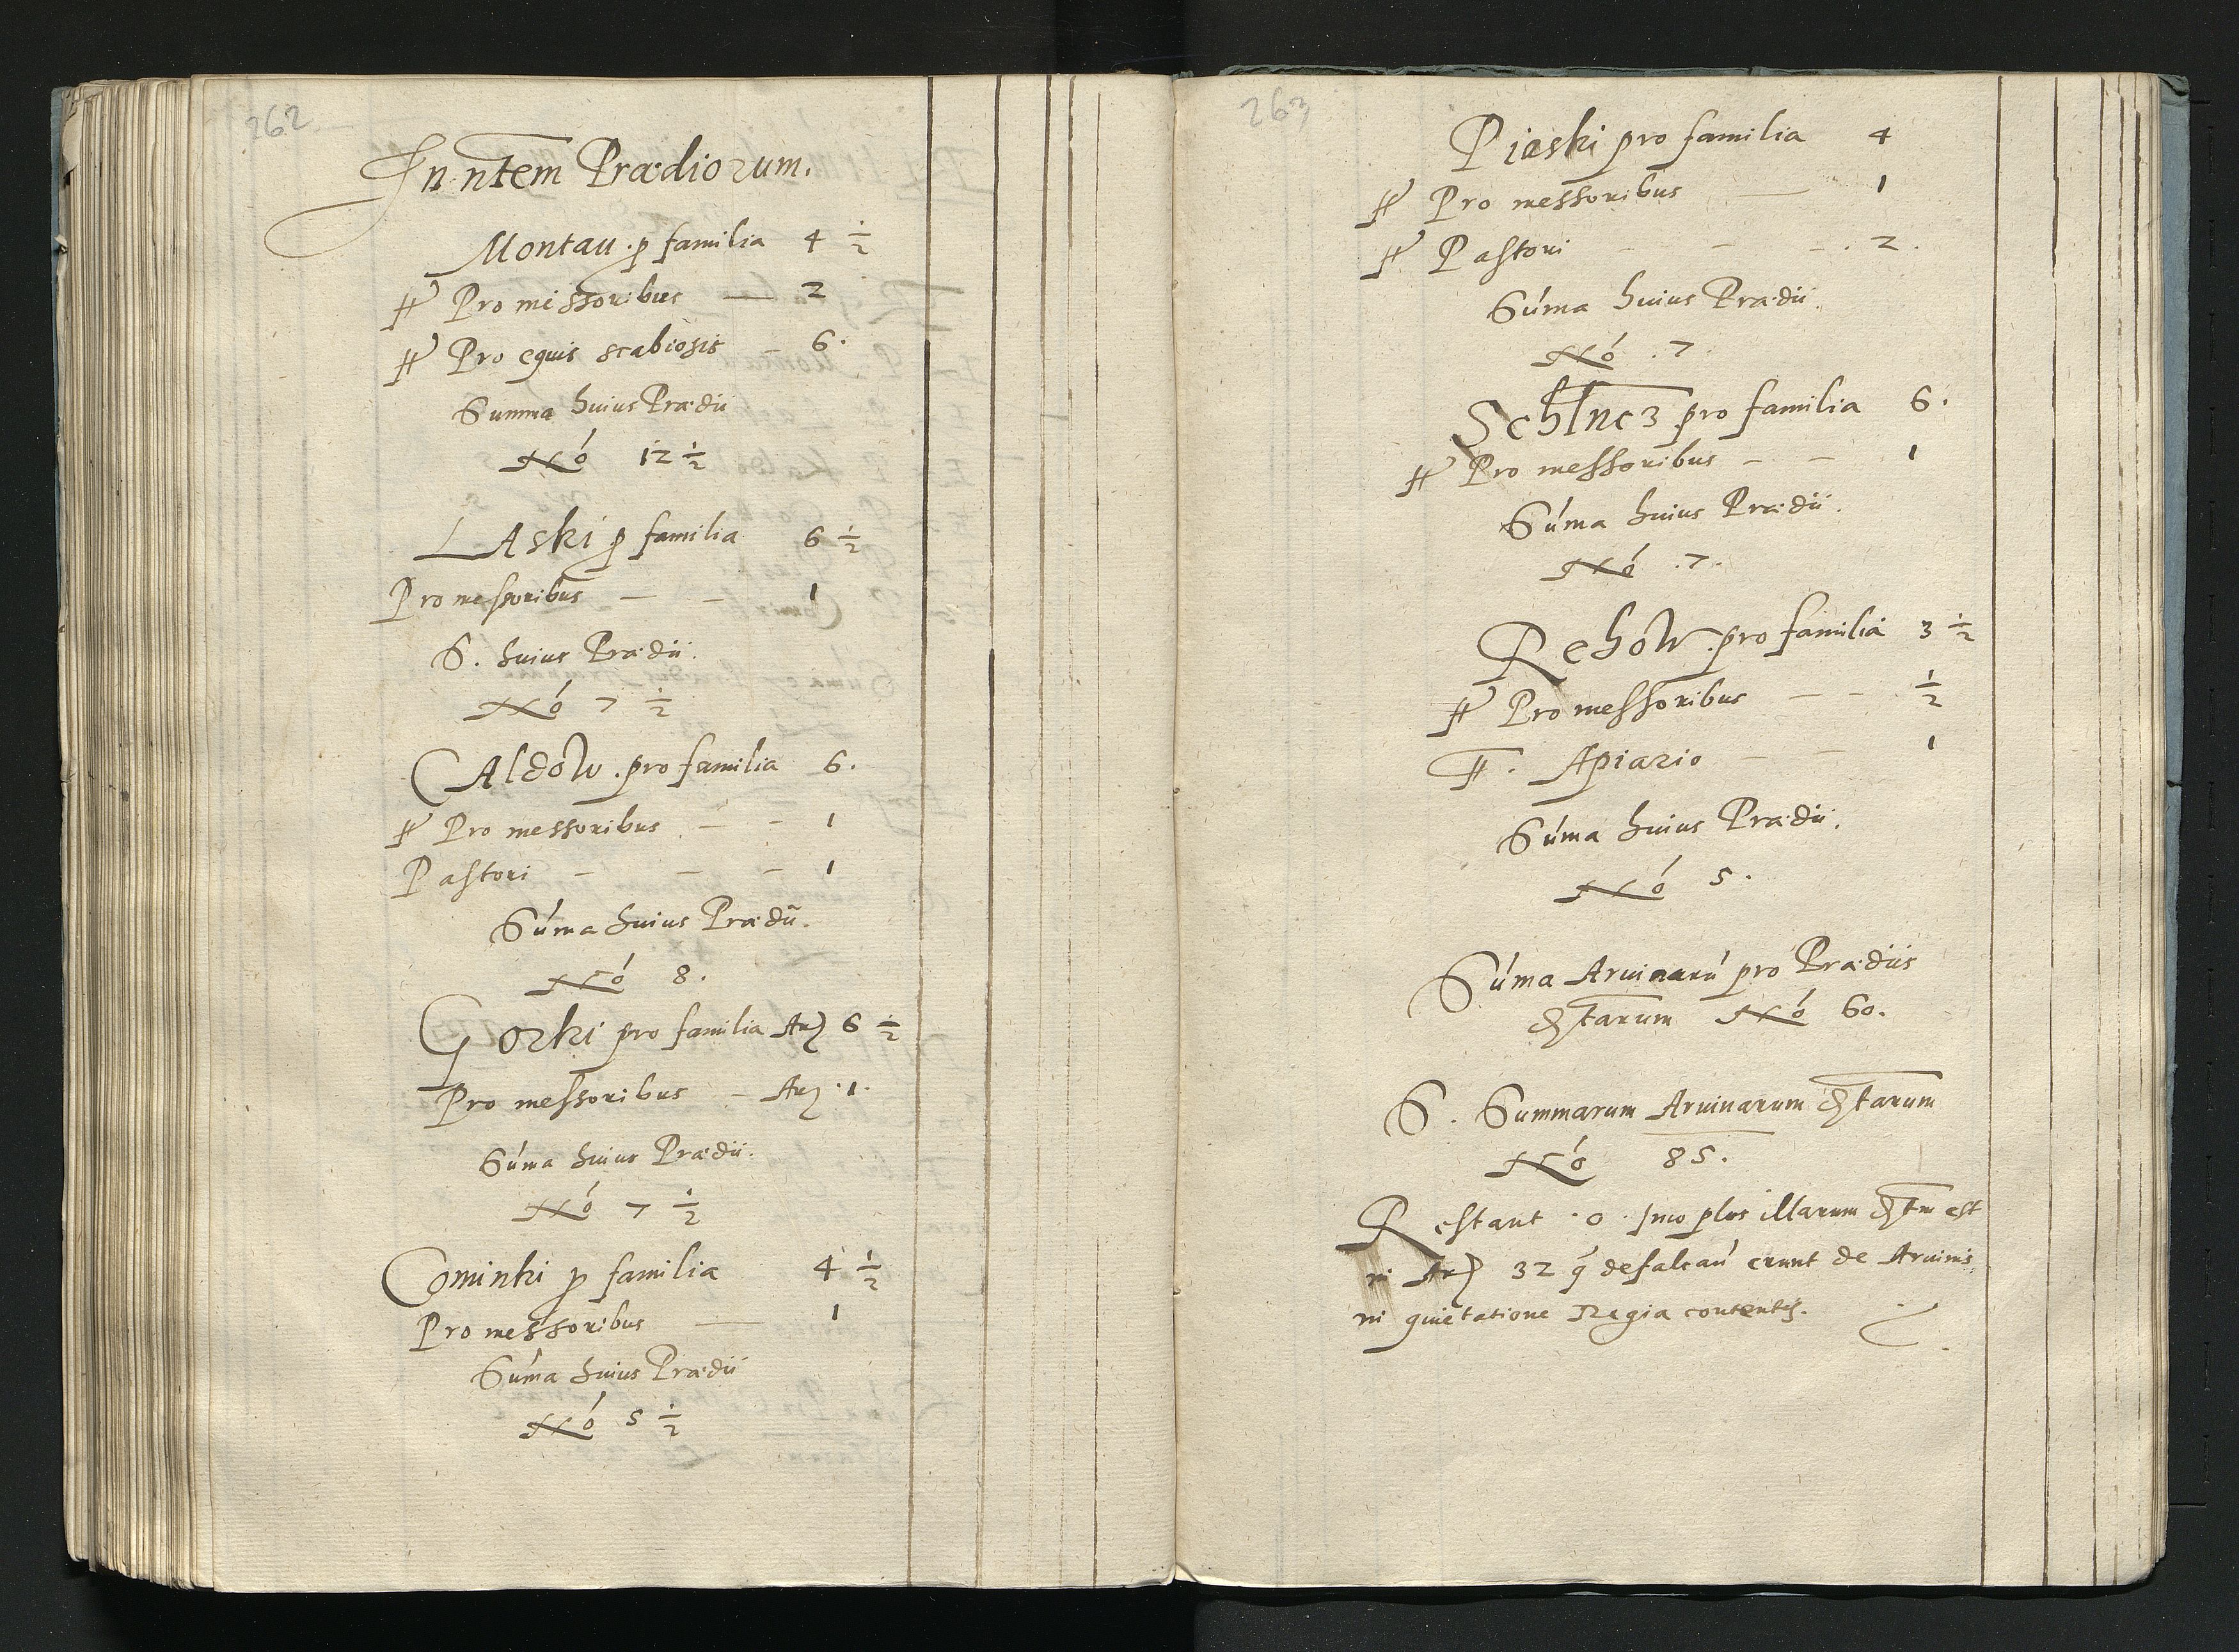 262
In ntem Prædiorum.
Montau. p familia 4 1/2
# Pro messoribus — 2
# Pro equis scabiosis – 6.
Summa huius Prædii
No 12 1/2
LAski p familia 6 1/2
Pro messoribus — – 1
S. huius Prædii.
No 7 1/2
CAldow. pro familia 6.
# Pro messoribus – – 1
Pastori – – – 1
Suma huius Prædii.
No 8.
Gorki pro familia Ar 6 1/2
Pro messoribus – Ar. 1.
Suma huius Prædii.
No 7 1/2
Cominki p familia 4 1/2
Pro messoribus — 1
Suma huius Prædii
No 5 1/2
263
Piaski pro familia 4
# Pro messoribus — 1
# Pastori – – – . 2.
Suma huius Prædii.
No . 7.
Schlncz pro familia 6.
# Pro messoribus – – 1
Suma huius Prædii.
No . 7.
Rehow. pro familia 3 1/2
# Pro messoribus – – 1/2
#. Apiario – – 1
Suma huius Prædii.
No 5.
Suma Aruinaru pro Prædiis
tarum No 60.
S. Summarum Aruinarum tarum
No 85.
Restant . 0 . Imo plus illarum est
in Ar 32 q defalcau erunt de Aruinis
in quietatione Regia contentis.